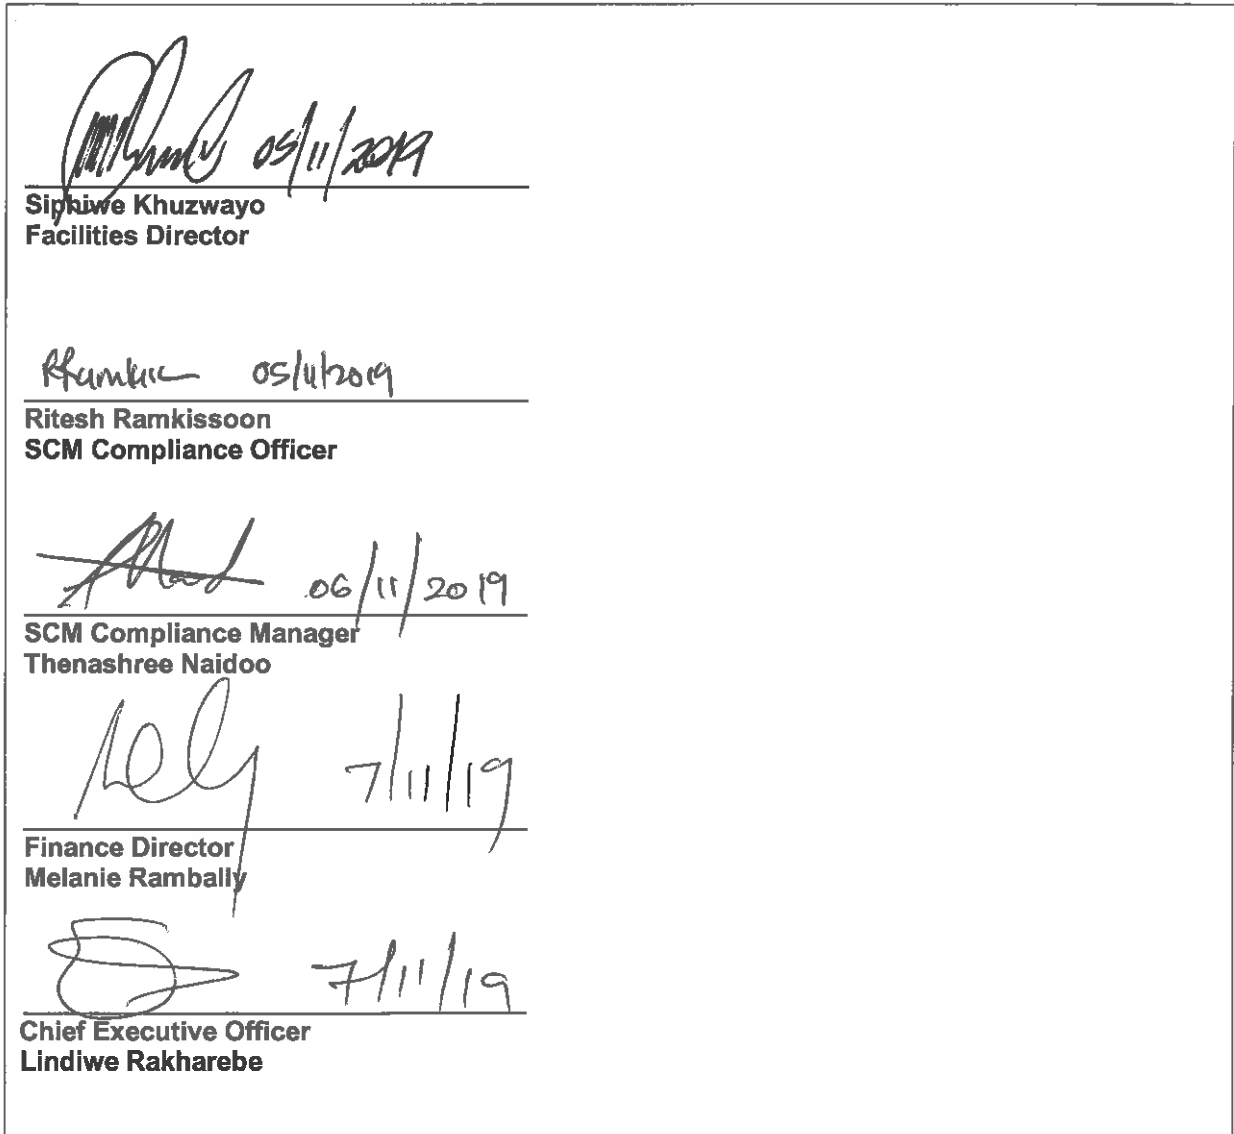 05/11/2019
Siphiwe Khuzwayo
Facilities Director
05/11/2019
Ritesh Ramkissoon
SCM Compliance Officer
06/11/2019
SCM Compliance Manager
Thenashree Naidoo
7/11/19
Finance Director
Melanie Rambally
7/11/19
Chief Executive Officer
Lindiwe Rakharebe